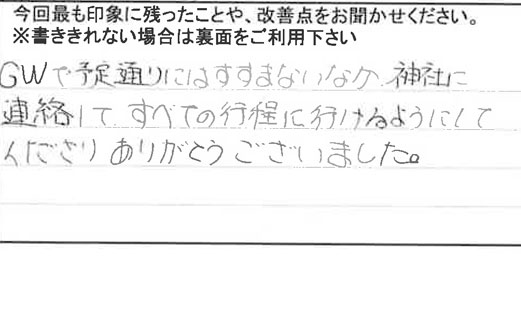 今回最も印象に残ったことや、改善点をお聞かせください。
※書ききれない場合は裏面をご利用下さい
GWで予定通りにはすすまないなか、神社に
連絡して、すべての行程に行けるようにして
くださり ありがとうございました。